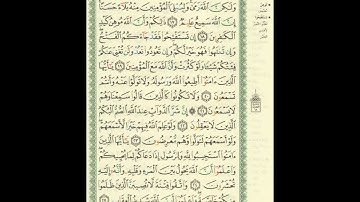 وَلَٰكِنَّ ٱللَّهَ رَمَىٰ وَلِيُبْلِىَ ٱلْمُؤْمِنِينَ مِنْهُ بَلَآءً حَسَنًا
إِنَّ ٱللَّهَ سَمِيعٌ عَلِيمٌ ١٧ ذَٰلِكُمْ وَأَنَّ ٱللَّهَ مُوهِنُ كَيْدِ
ٱلْكَٰفِرِينَ ١٨ إِن تَسْتَفْتِحُوا۟ فَقَدْ جَآءَكُمُ ٱلْفَتْحُ
وَإِن تَنتَهُوا۟ فَهُوَ خَيْرٌ لَّكُمْ وَإِن تَعُودُوا۟ نَعُدْ وَلَن تُغْنِىَ عَنكُمْ
فِئَتُكُمْ شَيْـًٔا وَلَوْ كَثُرَتْ وَأَنَّ ٱللَّهَ مَعَ ٱلْمُؤْمِنِينَ ١٩ يَٰٓأَيُّهَا
ٱلَّذِينَ ءَامَنُوٓا۟ أَطِيعُوا۟ ٱللَّهَ وَرَسُولَهُۥ وَلَا تَوَلَّوْا۟ عَنْهُ وَأَنتُمْ
تَسْمَعُونَ ٢٠ وَلَا تَكُونُوا۟ كَٱلَّذِينَ قَالُوا۟ سَمِعْنَا وَهُمْ
لَا يَسْمَعُونَ ٢١ إِنَّ شَرَّ ٱلدَّوَآبِّ عِندَ ٱللَّهِ ٱلصُّمُّ ٱلْبُكْمُ
ٱلَّذِينَ لَا يَعْقِلُونَ ٢٢ وَلَوْ عَلِمَ ٱللَّهُ فِيهِمْ خَيْرًا لَّأَسْمَعَهُمْ
وَلَوْ أَسْمَعَهُمْ لَتَوَلَّوا۟ وَّهُم مُّعْرِضُونَ ٢٣ يَٰٓأَيُّهَا ٱلَّذِينَ
ءَامَنُوا۟ ٱسْتَجِيبُوا۟ لِلَّهِ وَلِلرَّسُولِ إِذَا دَعَاكُمْ لِمَا يُحْيِيكُمْ
وَٱعْلَمُوٓا۟ أَنَّ ٱللَّهَ يَحُولُ بَيْنَ ٱلْمَرْءِ وَقَلْبِهِۦ وَأَنَّهُۥٓ إِلَيْهِ
تُحْشَرُونَ ٢٤ وَٱتَّقُوا۟ فِتْنَةً لَّا تُصِيبَنَّ ٱلَّذِينَ ظَلَمُوا۟